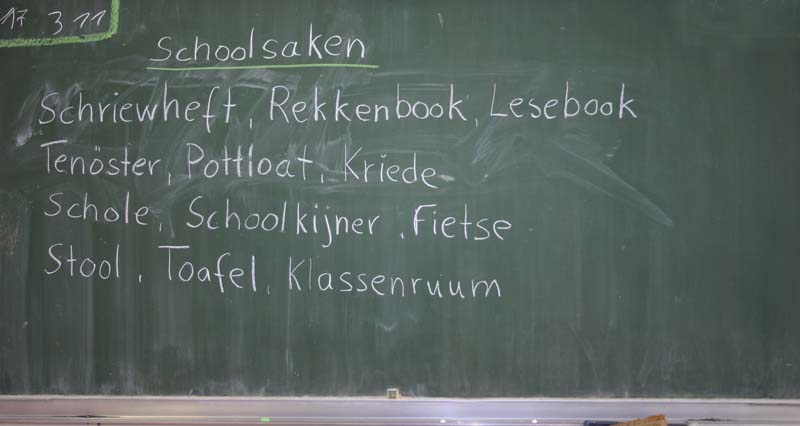 17 3 11
Schoolsaken
Schriewheft, Rekkenbook, Lesebook
Tenöster, Pottloat, Kriede
Schole, Schoolkijner, Fietse
Stool, Toafel, Klassenruum